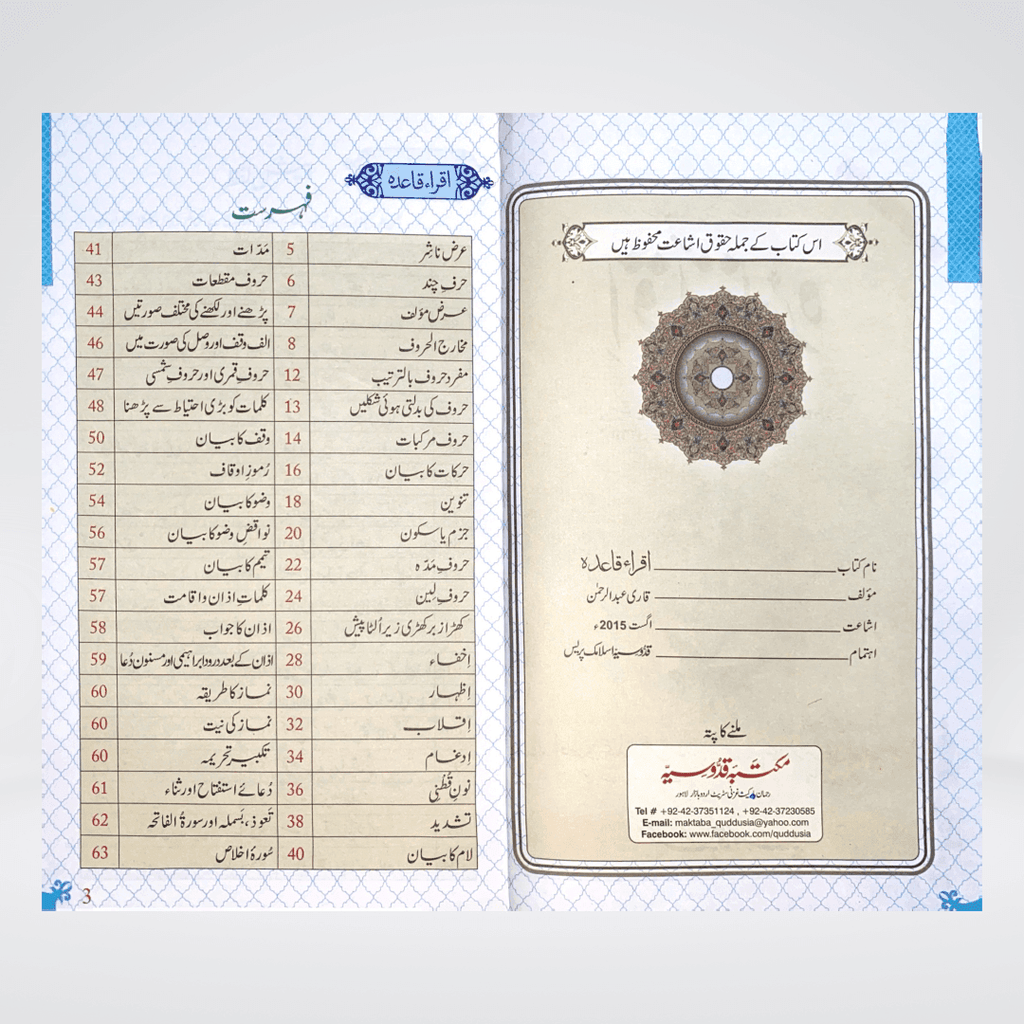 اس کتاب کے جملہ حقوق اشاعت محفوظ ہیں
نام کتاب ــــــ اقراء قاعدہ
مؤلف ــــــ قاری عبدالرحمٰن
اشاعت ــــــ اگست 2015ء
اہتمام ــــــ قدوسیہ اسلامک پریس
ملنے کا پتہ
مکتبہ قدوسیہ
رحمان مارکیٹ غزنی سٹریٹ اردو بازار لاہور
Tel # +92-42-37351124 , +92-42-37230585
E-mail: maktaba_quddusia@yahoo.com
Facebook: www.facebook.com/quddusia
اقراء قاعدہ
فہرست
عرض ناشر 5 مَدّات 41
حرفِ چند 6 حروف مقطعات 43
عرض مؤلف 7 پڑھنے اور لکھنے کی مختلف صورتیں 44
مخارج الحروف 8 الف وقف اور وصل کی صورت میں 46
مفرد حروف بالترتیب 12 حروفِ قمری اور حروفِ شمسی 47
حروف کی بدلتی ہوئی شکلیں 13 کلمات کو بڑی احتیاط سے پڑھنا 48
حروف مرکبات 14 وقف کا بیان 50
حرکات کا بیان 16 رُموزِ اوقاف 52
تنوین 18 وضو کا بیان 54
جزم یا سکون 20 نواقض وضو کا بیان 56
حروفِ مَدّہ 22 تیمم کا بیان 57
حروفِ لین 24 کلماتِ اذان و اقامت 57
کھڑا زبر کھڑی زیر اُلٹا پیش 26 اذان کا جواب 58
اِخفاء 28 اذان کے بعد درود ابراہیمی اور مسنون دُعا 59
اِظہار 30 نماز کا طریقہ 60
اِقلاب 32 نماز کی نیت 60
اِدغام 34 تکبیر تحریمہ 60
نونِ قُطنِی 36 دُعائے استفتاح اور ثناء 61
تشدید 38 تعوذ، بسملہ اور سورۃ الفاتحہ 62
لام کا بیان 40 سُورۂ اخلاص 63
3